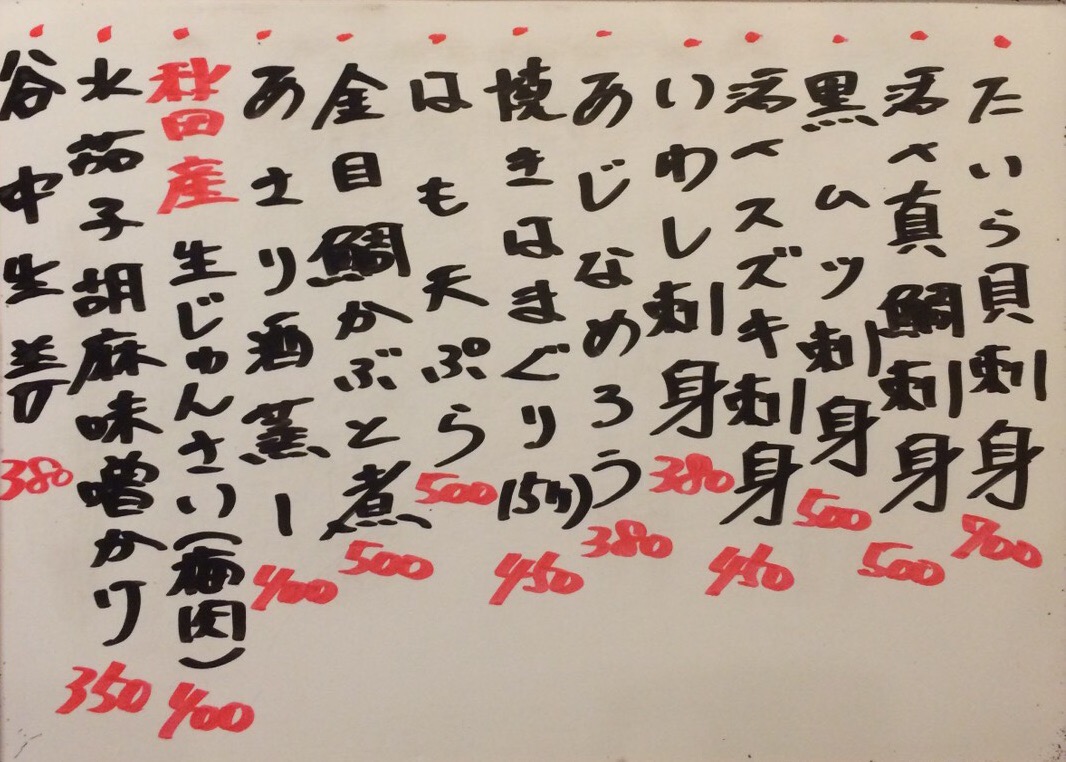 たいら貝刺身 700
活〆真鯛刺身 500
黒ムツ刺身 500
活〆スズキ刺身 450
いわし刺身 380
あじなめろう 380
焼きはまぐり 450
はも天ぷら 500
金目鯛かぶと煮 500
あさり酒蒸し 400
秋田産生じゅんさい(梅肉) 400
水茄子胡麻味噌かけ 350
谷中生姜 380